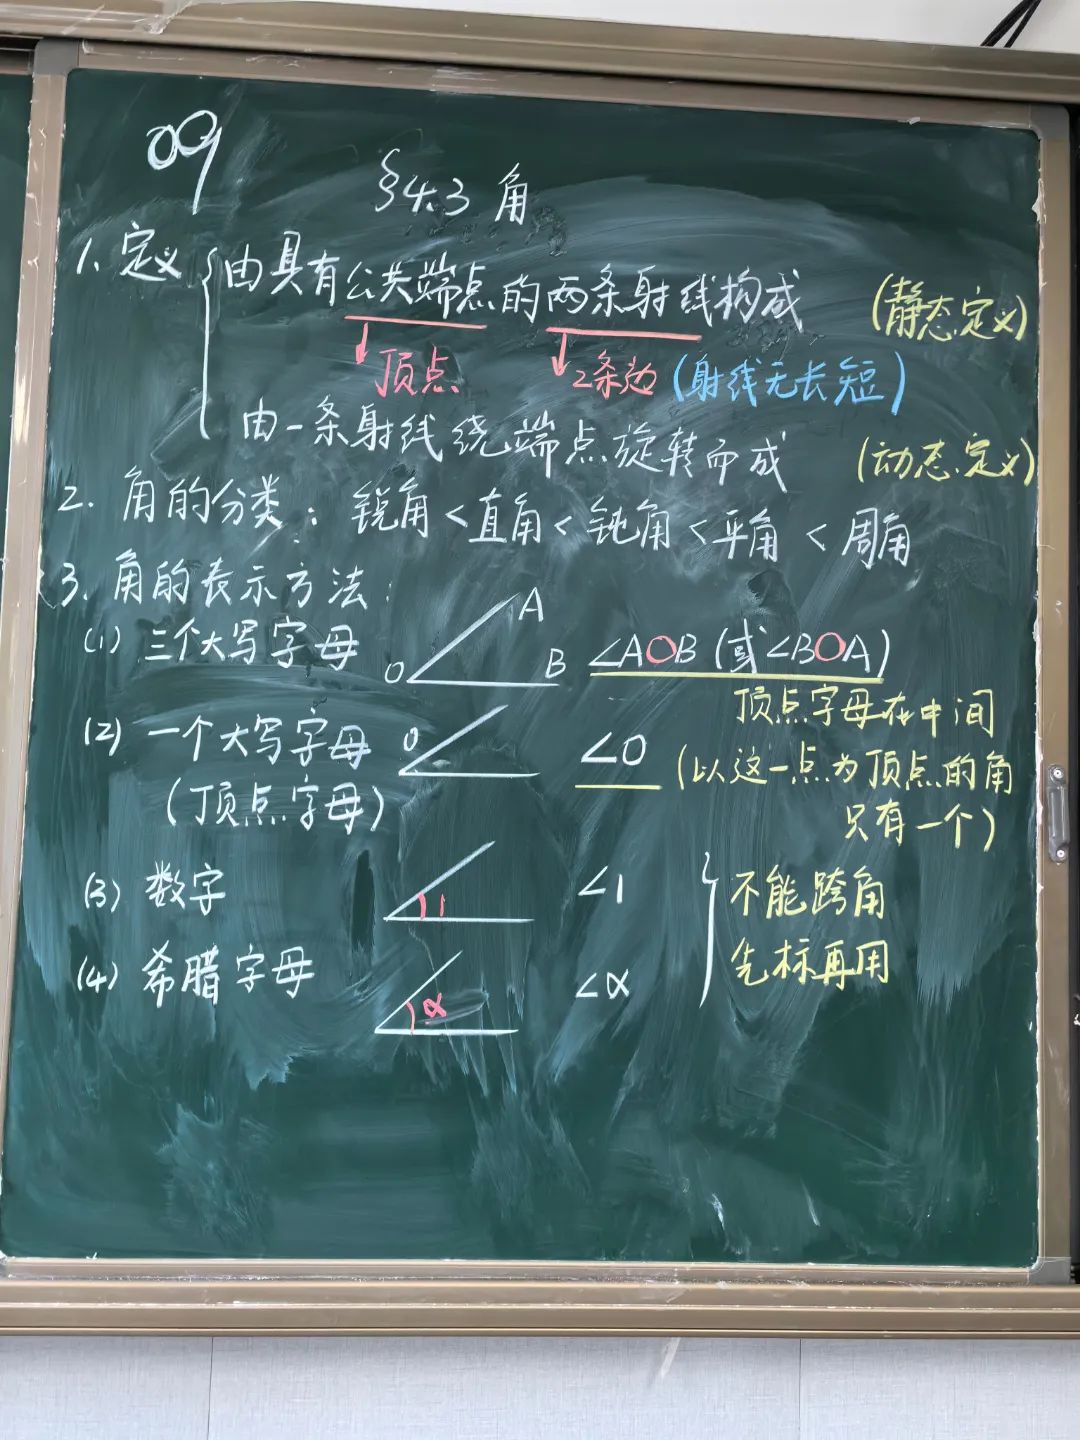 09
§4.3 角
1、定义 由具有公共端点的两条射线构成 (静态定义)
顶点 2条边 (射线无长短)
由一条射线绕端点旋转而成 (动态定义)
2. 角的分类: 锐角<直角<钝角<平角<周角
3. 角的表示方法:
(1) 三个大写字母 O A B ∠AOB (或∠BOA)
顶点字母在中间
(2) 一个大写字母 O ∠O (以这一点为顶点的角
(顶点字母) 只有一个)
(3) 数字 1 ∠1 不能跨角
(4) 希腊字母 α ∠α 先标再用